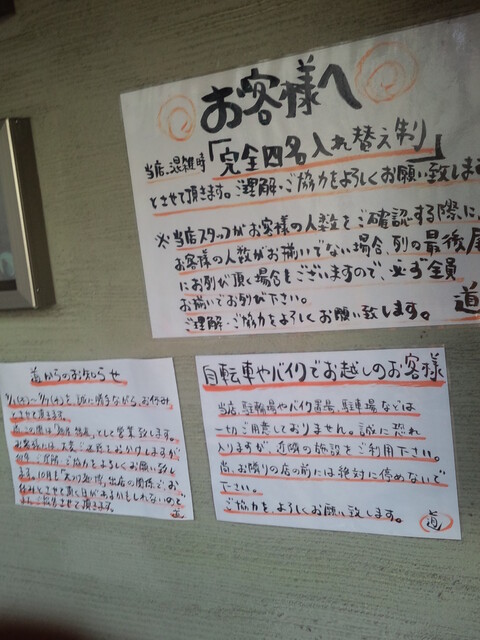 お客様へ
当店、混雑時「完全四名入れ替え制」
とさせて頂きます。ご理解・ご協力をよろしくお願い致します
※当店スタッフがお客様の人数をご確認する際に、
お客様の人数がお揃いでない場合、列の最後尾
にお列び頂く場合もございますので、必ず全員
お揃いでお列び下さい。
ご理解・ご協力をよろしくお願い致します。 道
道からのお知らせ
誠に勝手ながら、お休み
とさせて頂きます。
として営業致します。
お客様には大変ご迷惑をおかけしますが
ご理解・ご協力をよろしくお願い致し
ます。10月も 出店の関係で、お
休みとさせて頂く日があるかもしれないので
自転車やバイクでお越しのお客様
当店、駐輪場やバイク置場、駐車場などは
一切ご用意しておりません。誠に恐れ
入りますが、近隣の施設をご利用下さい。
尚、お隣りの店の前には絶対に停めないで
下さい。
ご協力をよろしくお願い致します。 道